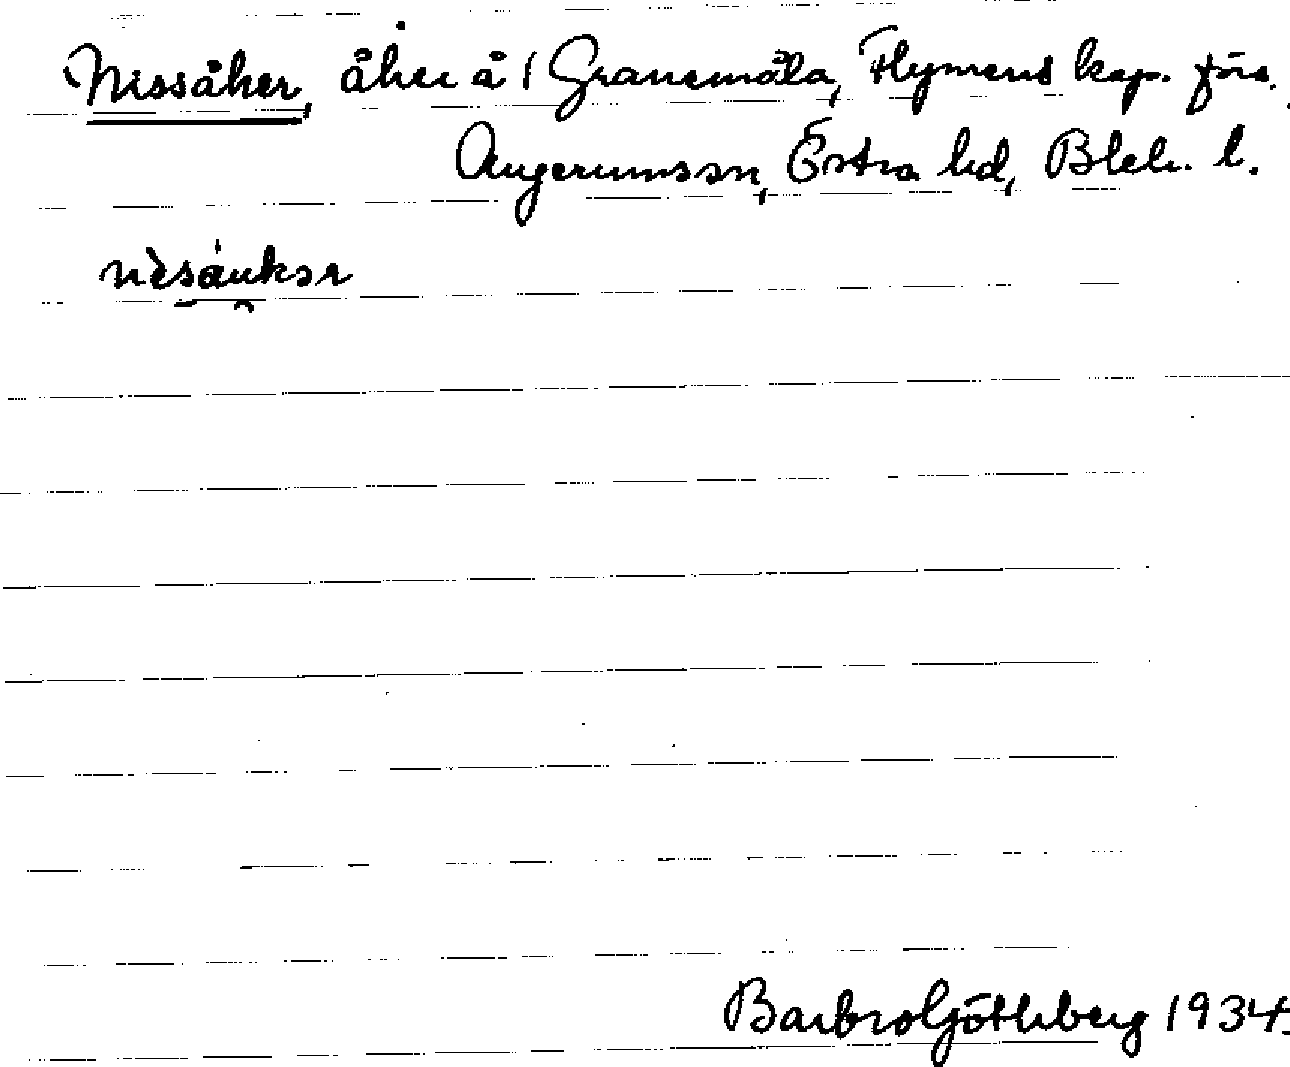 Nissåker, åker å 1 Granemåla, Flymens kap. förs.
Augerumssn, Östra hd, Blek. l.
nìsáukər
Barbro Götheberg 1934.